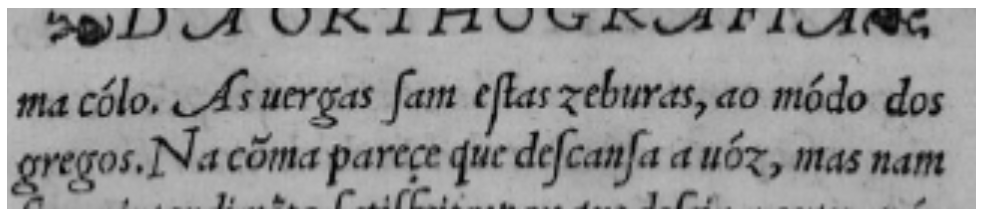 DA ORTHOGRAFIA
ma cólo. As uergas ſam eſtas zeburas, ao módo dos
gregos. Na cõma pareçe que deſcanſa a uóz, mas nam